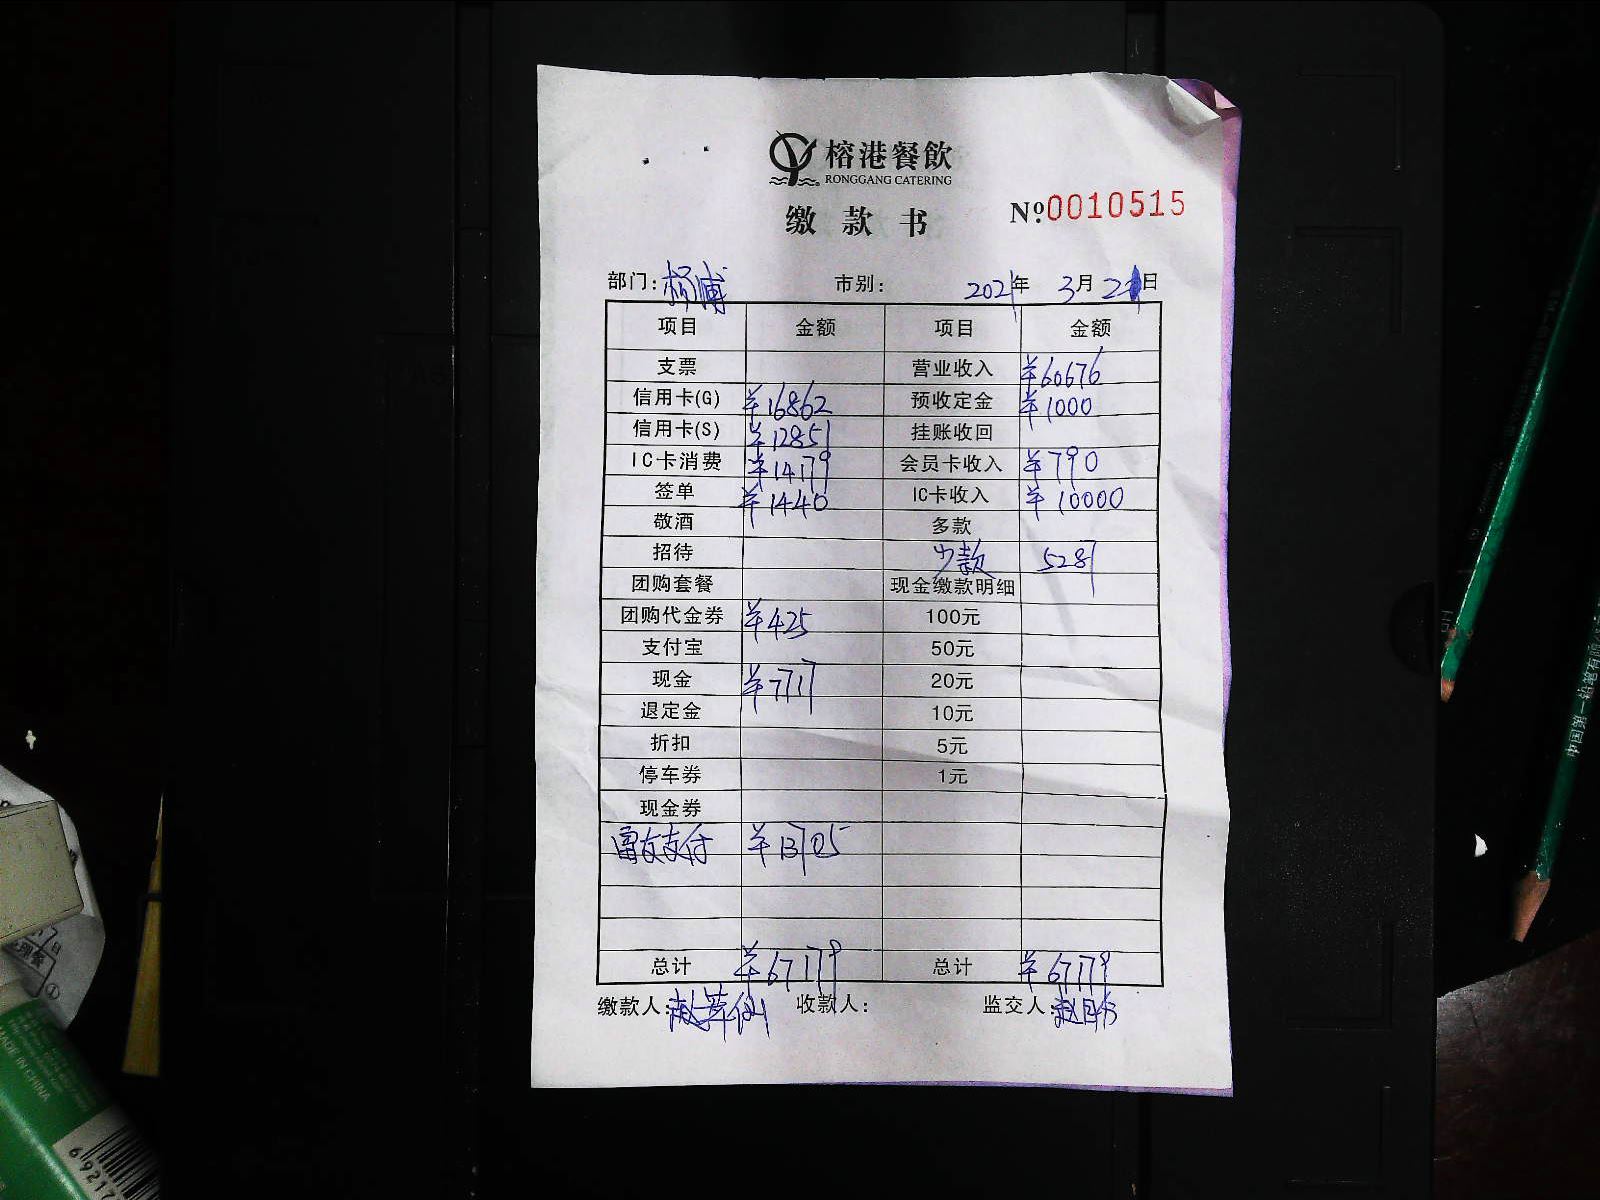 榕港餐飲
RONGGANG CATERING
缴款书
№0010515
部门:杨浦 市别: 2021年 3月 2日
项目 金额 项目 金额
支票 营业收入 ¥60676
信用卡(G) ¥16862 预收定金 ¥1000
信用卡(S) ¥12851 挂账收回
IC卡消费 ¥14179 会员卡收入 ¥790
签单 ¥1440 IC卡收入 ¥10000
敬酒 多款
招待 少款 5287
团购套餐 现金缴款明细
团购代金券 ¥425 100元
支付宝 50元
现金 ¥7717 20元
退定金 10元
折扣 5元
停车券 1元
现金券
富友支付 ¥13705
总计 ¥67179 总计 ¥67179
缴款人: 收款人: 监交人:
中国第一铅笔有限
MADE IN CHINA